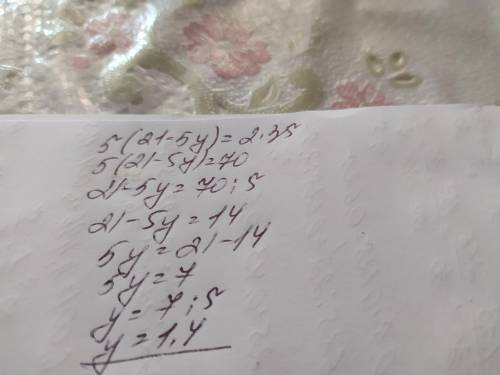 5(21-5y)=2·35
5(21-5y)=70
21-5y=70:5
21-5y=14
5y=21-14
5y=7
y=7:5
y=1,4